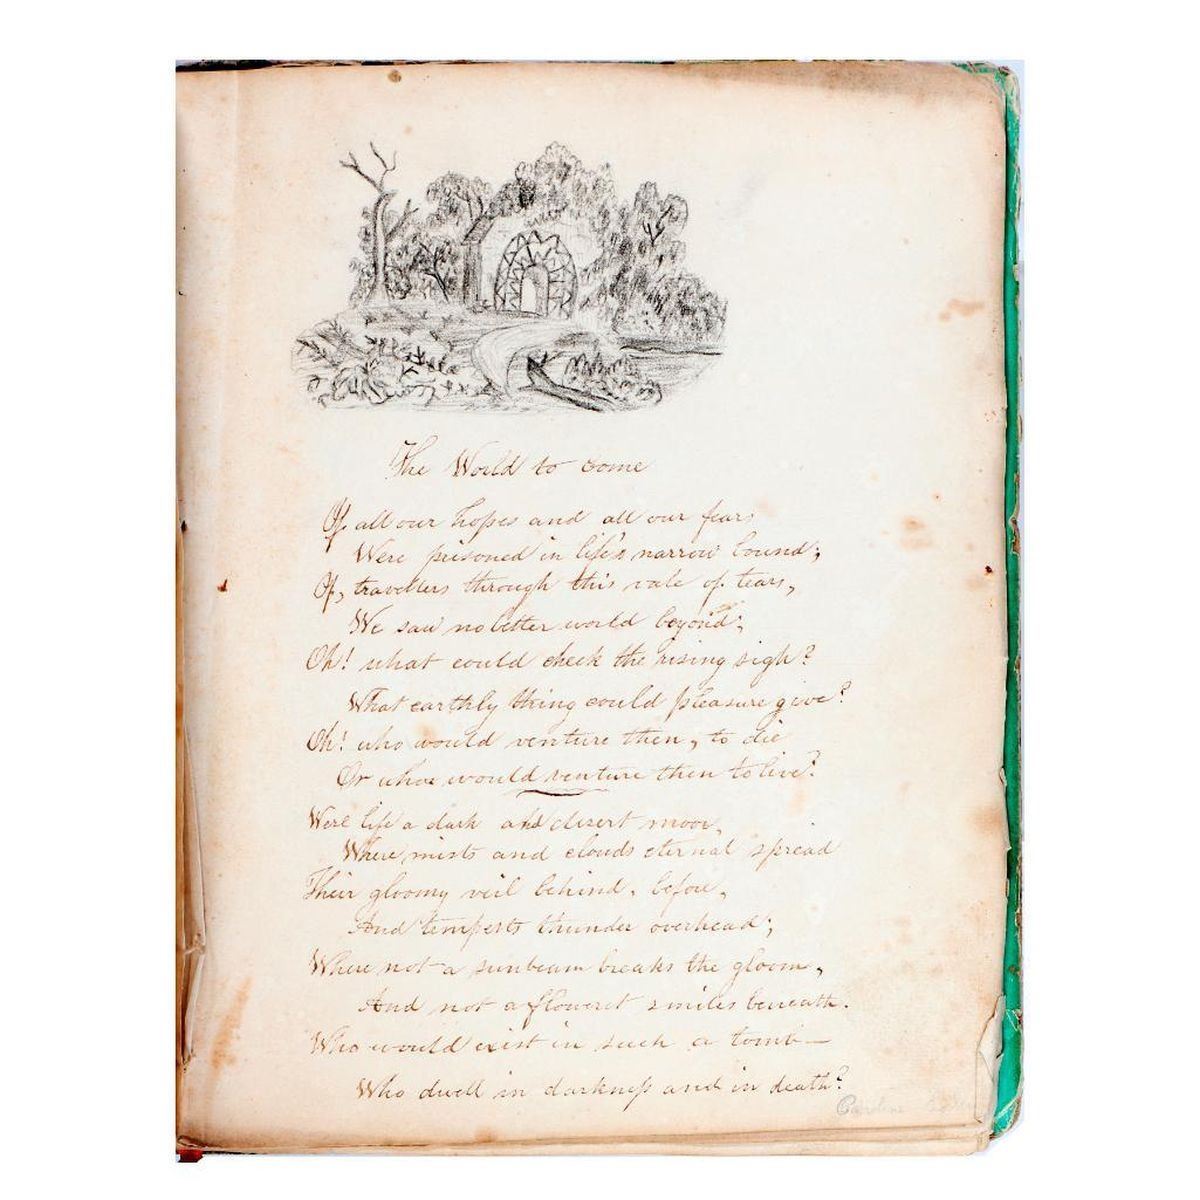 The World to come
If all our hopes and all our fears
Were prisoned in life's narrow bound;
If, travellers through this vale of tears,
We saw no better world beyond;
Oh! what could check the rising sigh?
What earthly thing could pleasure give?
Oh! who would venture then, to die
Or who would venture then to live?
Were life a dark and desert moor,
Where mists and clouds eternal spread
Their gloomy veil behind, before,
And tempests thunder overhead;
Where not a sunbeam breaks the gloom,
And not a floweret smiles beneath.
Who would exist in such a tomb—
Who dwell in darkness and in death?
Caroline